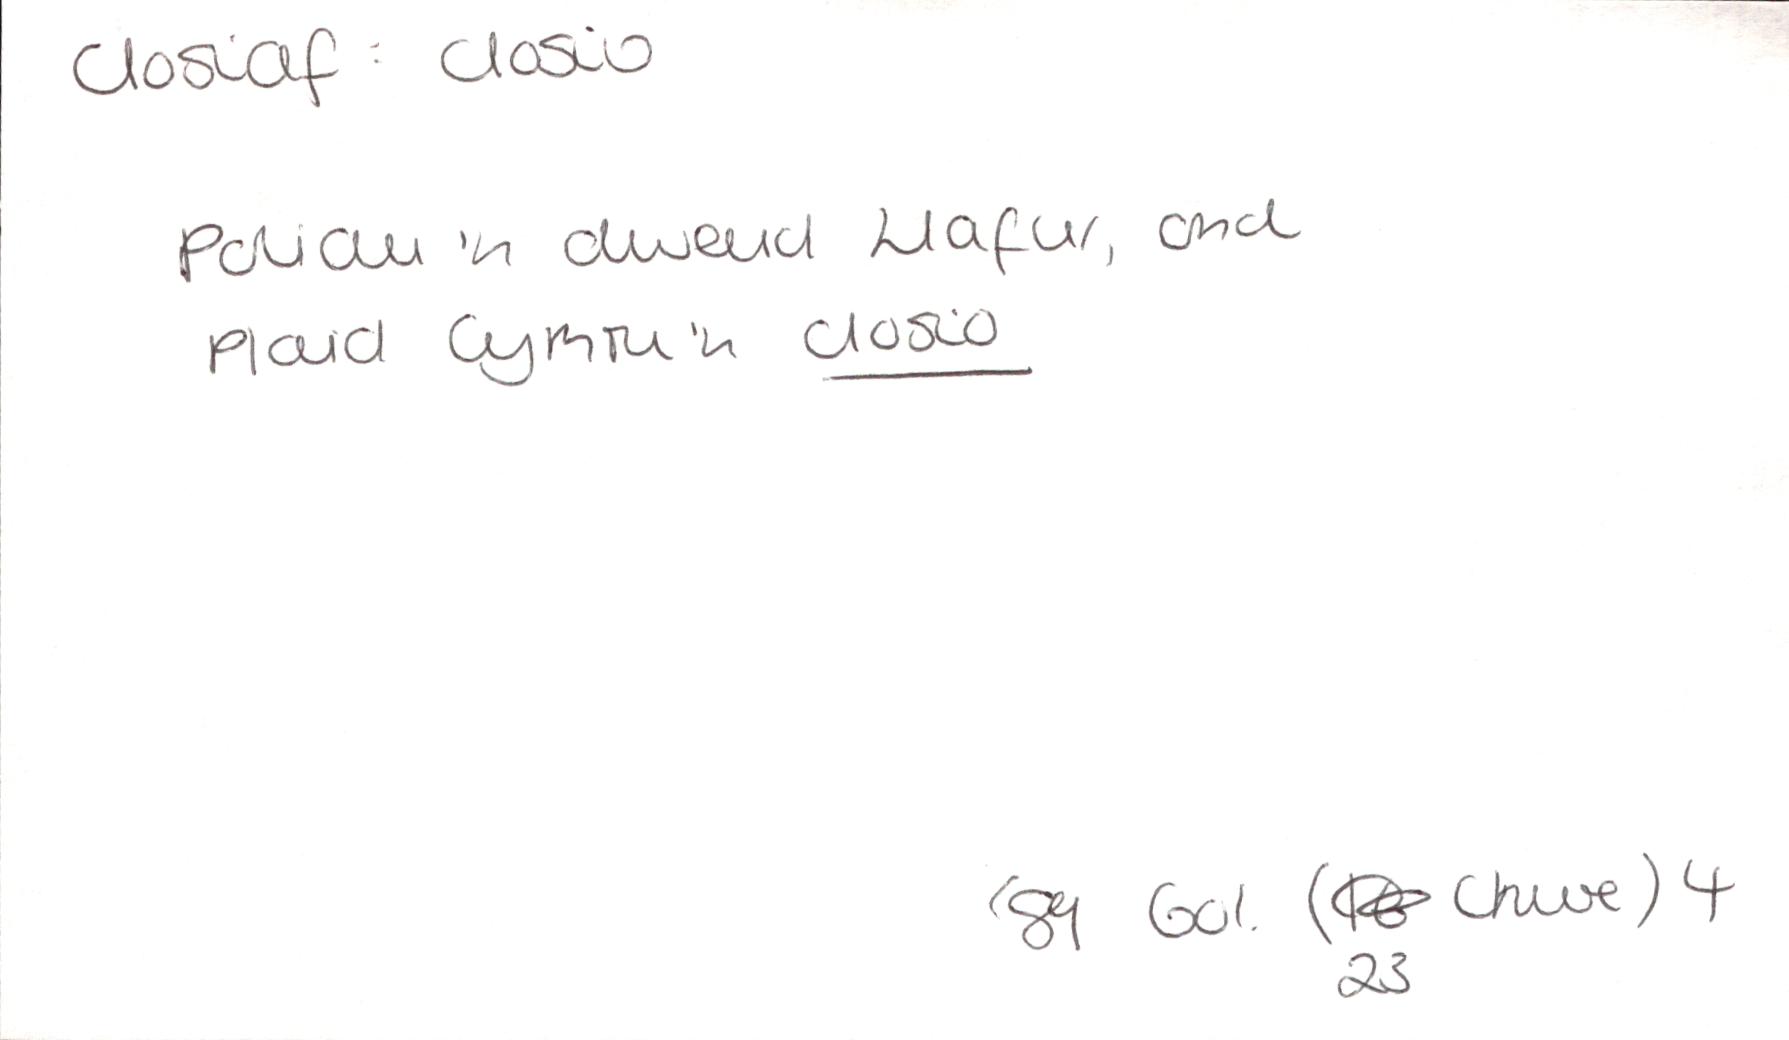 closiaf: closio
Poliau'n dweud Llafur, ond
Plaid Cymru'n closio
'89 Gol. (Chwe) 4
23